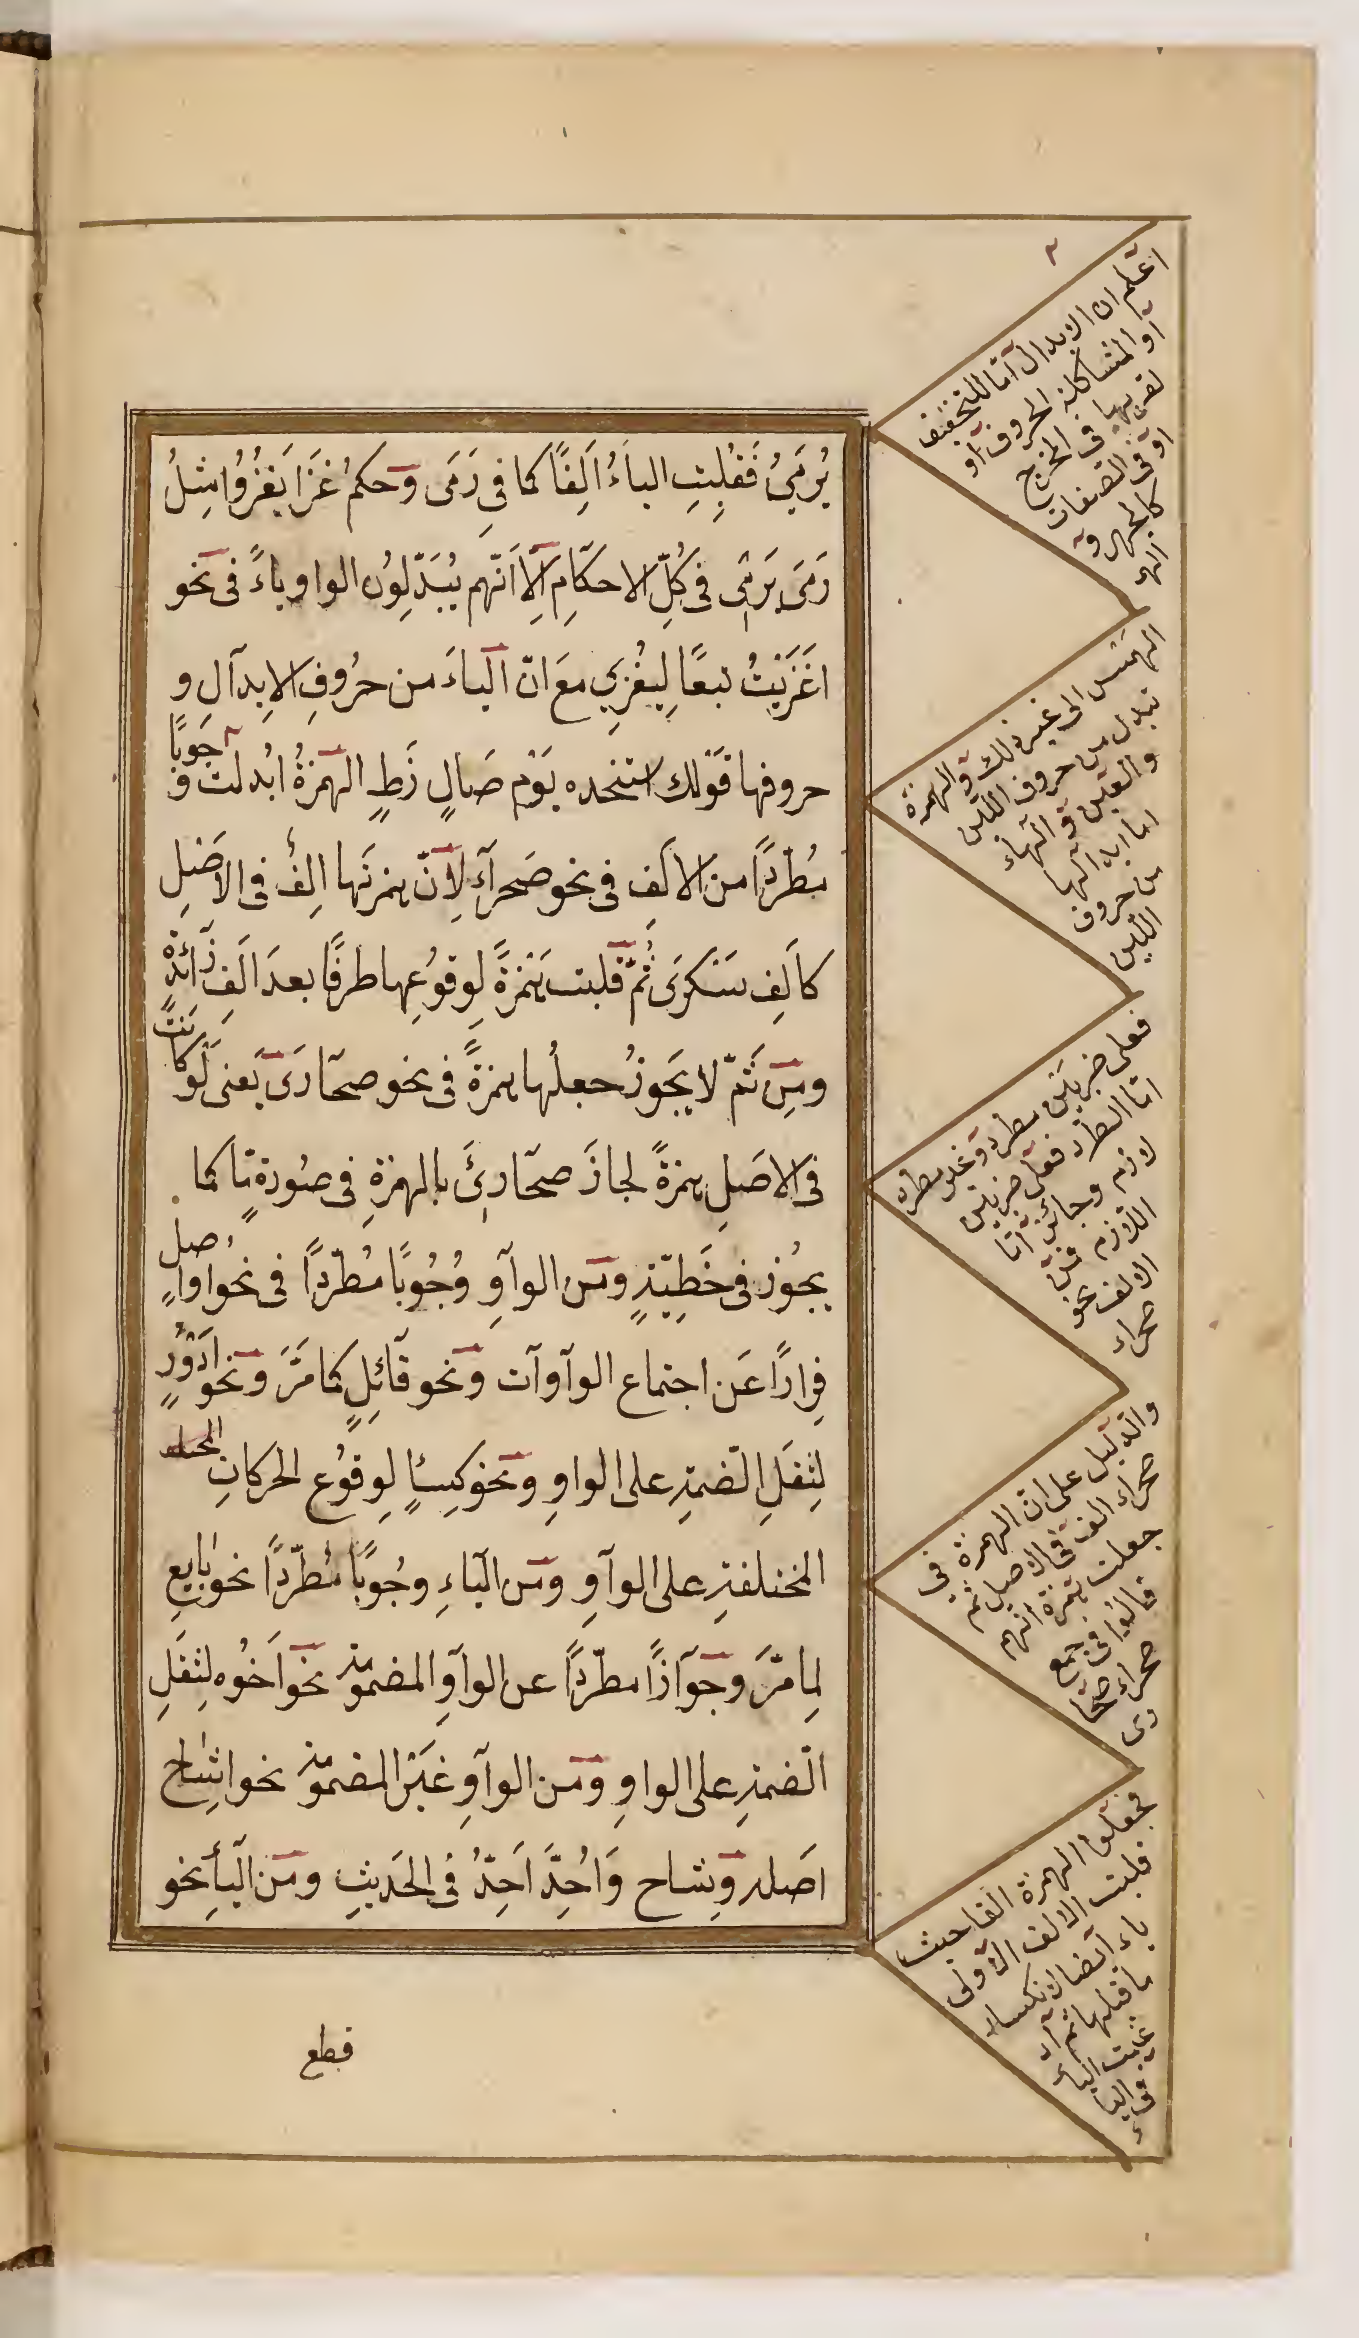 يُرْمَيُ فَقُلِبَتِ الياَءُ اَلِفًا كما فِى رَمَى وَحكمُ غَزَا يَغْزُوا مِثلُ
رَمَى يَرْمِى فى كُلِّ الاحكَامِ اِلّا اَنّهم يُبَدِّلُونَ الواو ياءً فى نحو
اَغزَيْتُ تبعًا لِيُغْزِي معَ انّ اليَاءَ من حرُوفِ الاِبدآل و
حروفها قَوْلك استنجده يَوْم صَالٍ زَطٍ الهمْزةُ ابُدلت وجَوبًا
مُطّردًا من الاَلَفِ فى نحو صَحرآءَ لِاَنّ همزتَها اَلِفُ فى الاَصْلِ
كاَلِفِ سَكرَى ثُمَّ قُلبت هَمْزةً لِوقوُعِها طرفًا بعدَ الَفِ زَائدَةٍ
ومِن ثَمَّ لا يَجوزُ جعلُها همزةً فى نحو صحَارَى يَعنى لَو كَانَتْ
فى الاصَلِ همزةً لجازَ صَحَارِئَ بالهمزةِ فى صُورةٍ مّا كما
يجُوز فى خَطِيْئةٍ ومن الوآوِ وُجُوبًا مُطّردًا فى نحو اواصل
فِرارًا عَن اجتماع الوآوآت ونحو قَائلٍ كَما مَرَّ ونحو ادْؤُرٍ
لِثقلِ الضّمةِ على الواوِ ونحو كِساءٍ لِوقوُع الحركاتِ
المختلفةِ على الوآوِ ومن اليَاءِ وجُوبًا مُطّردًا نحو بَايعِ
لِمامَرَّ وجوَآزًا مطّردًا عن الوآوِ المضمُومة نحو اَجُوه لِثقلِ
الضّمةِ على الواوِ ومن الوآوِ غَيْرِ المضمُومة نحو اشِاح
اصَله وِشاح وَاَحِدَّ اَحِدُّ فى الحَديثِ ومَن اليَأِ نحو
قطع
اعلم ان الابدال اّما للتخفيف
اَو المشاكلة الحروف او
لقربها فى المخرج
او فى الصفات
كالمجهورة
الهمْس الى غير ذلك وَالهمزة
تبدل من حروف اللّين
والعَين وَ الهاء
اما ابدالها
من حروف
اللّين
فعلى ضربيْن مطرد وَغير مطرد
امّا المطرد فعلى ضربين
لازم وجائز امّا
اللّازم فمن
الالف نحو
صحراء
والدّليل على انّ الهمزة فى
صحراء الف فى الاصل ثم
جعلت همزة انهم
قالوا فى جمع
صحراء صحا
رى
فجعَلوا الهمزة الفا حيث
قلبت الالف الاَولى
ياء اَيضا لانكسار
ما قبلها ثم اَد
غمت الياء
فى اليا
ء